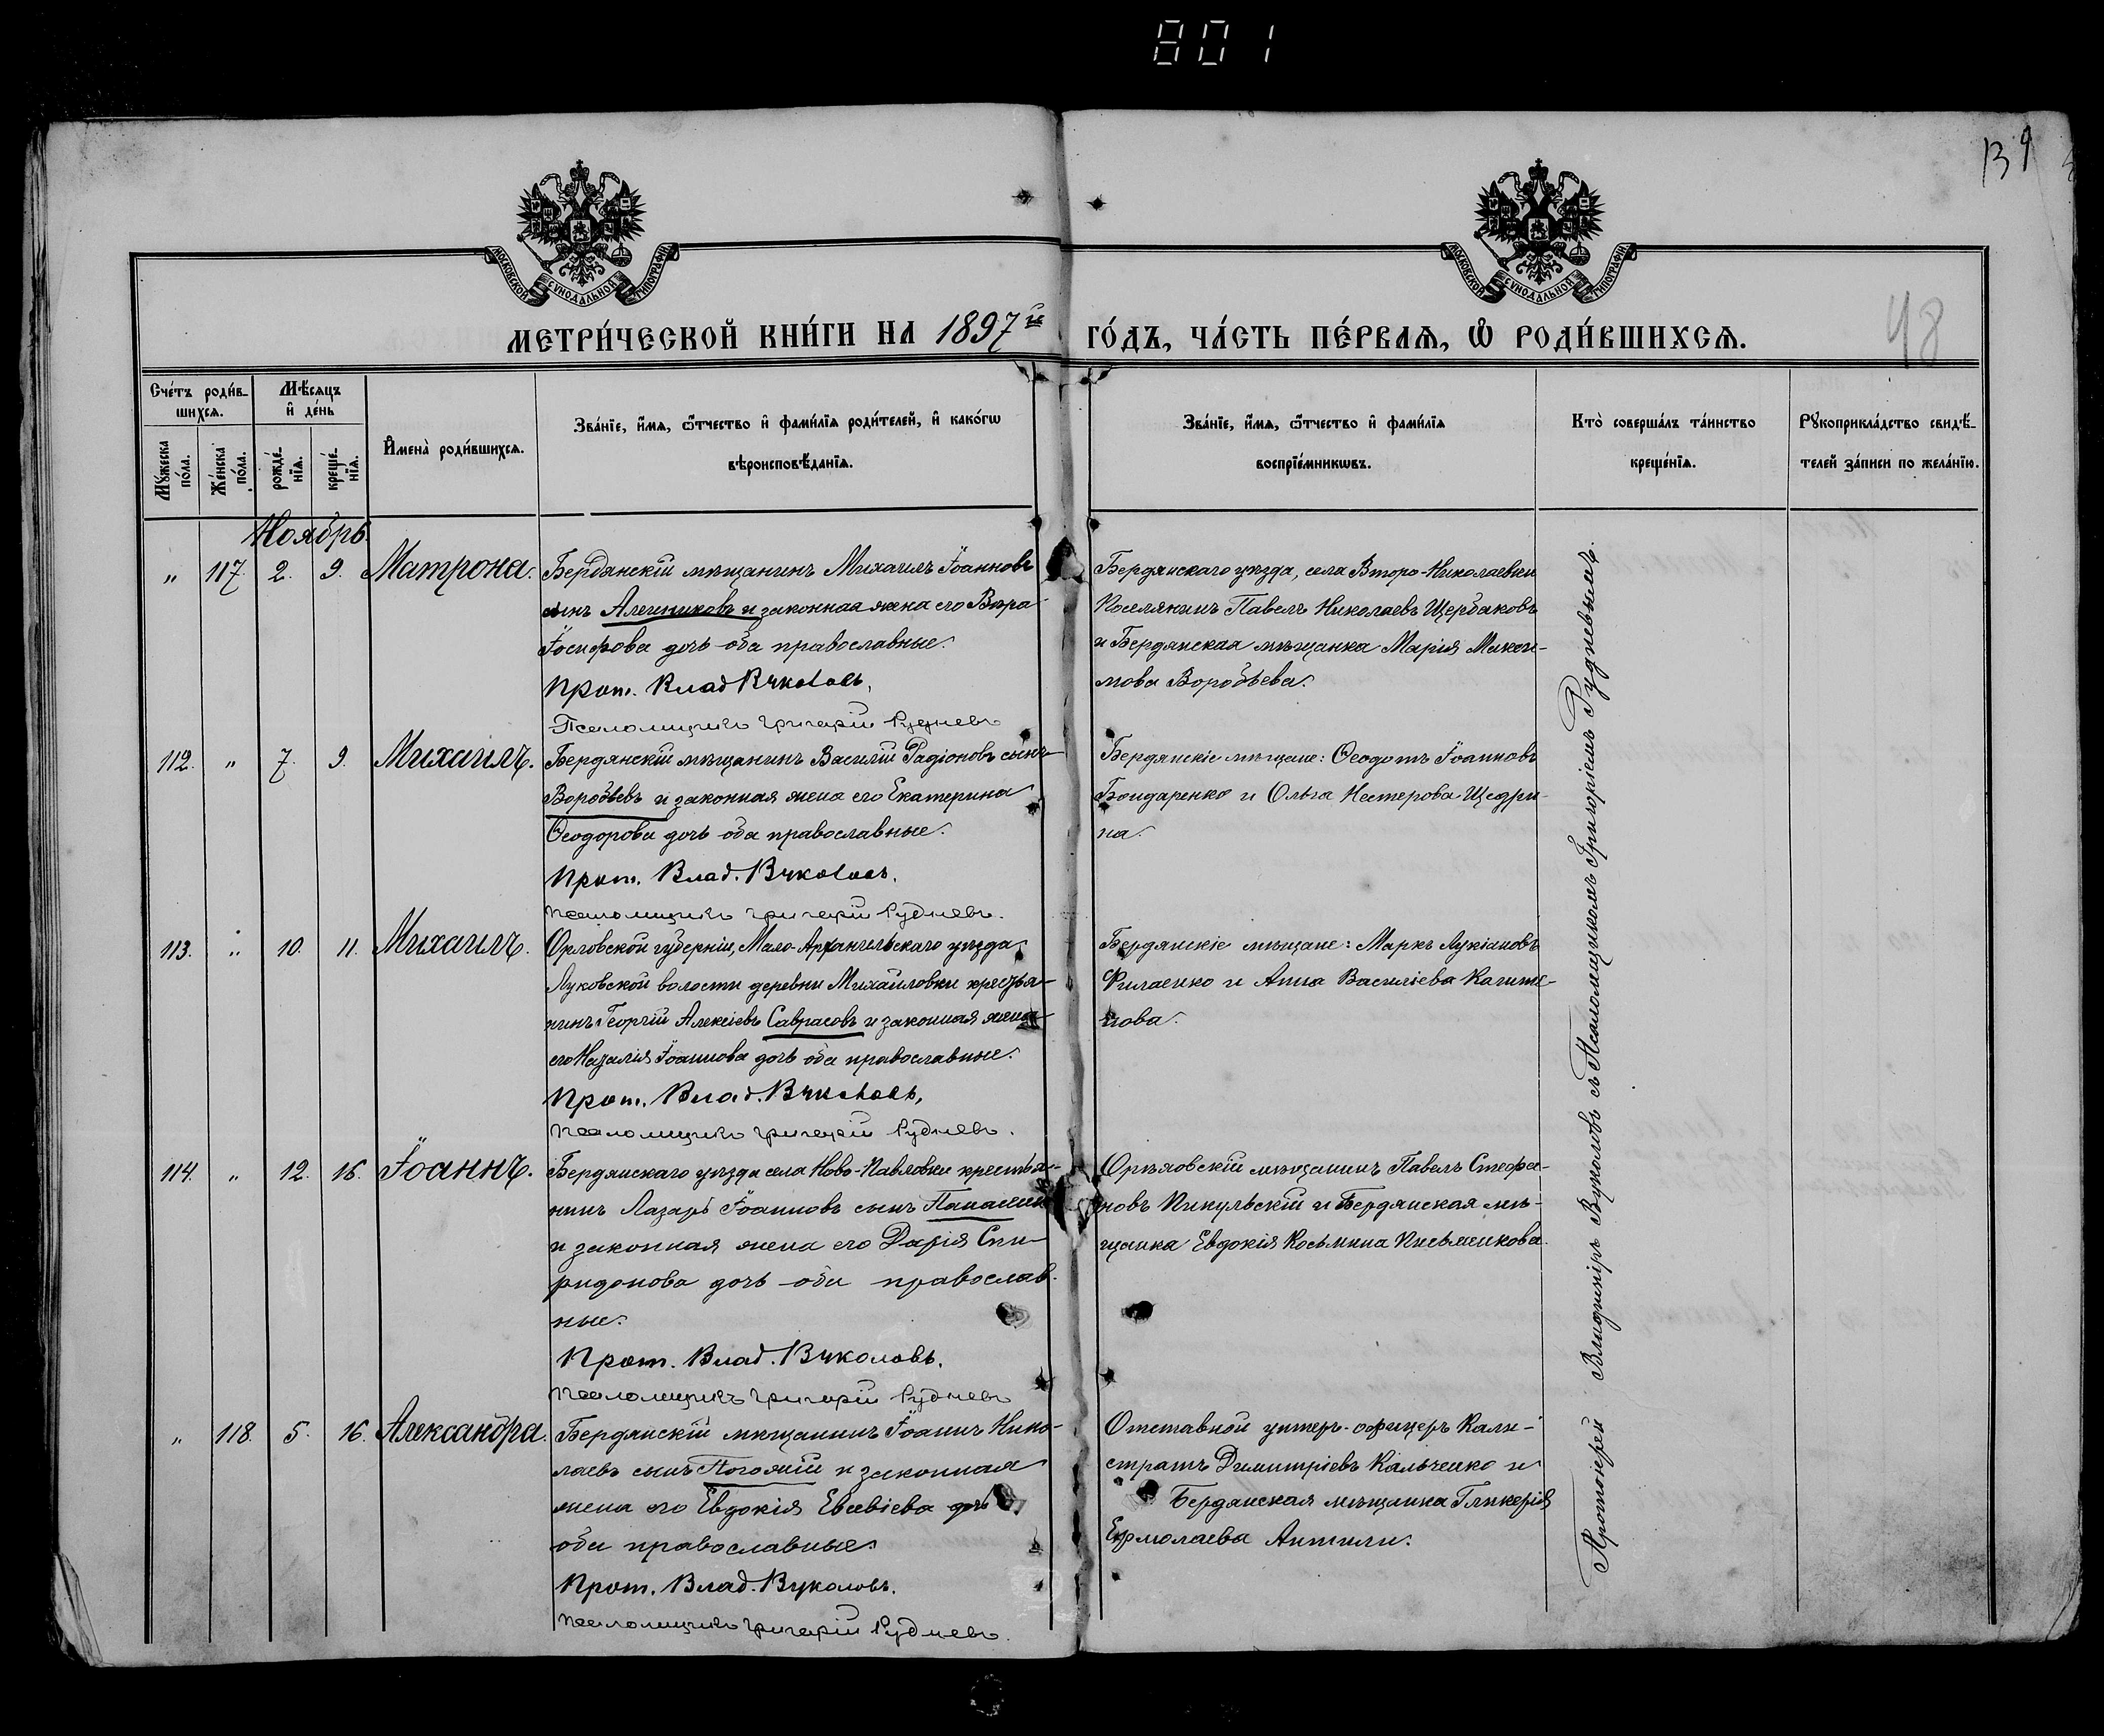 801
139
МОСКОВСКОЙ СѴНОДАЛЬНОЙ ТИПОГРАФІИ
МОСКОВСКОЙ СѴНОДАЛЬНОЙ ТИПОГРАФІИ
48
МЕТРИ́ЧЕСКОЙ КНИ́ГИ НА 1897й ГО́ДЪ, ЧА́СТЬ ПЕ́РВАѦ, Ѡ҆ РОДИ́ВШИХСѦ.
Сче́тъ роди́в-
шихсѧ.
Мꙋ́жеска по́ла.
Же́нска по́ла.
Мѣ́сѧцъ
и҆ де́нь
рожде́нїѧ.
креще́нїѧ.
И҆мена̀ роди́вшихсѧ.
Зва́нїе, и҆́мѧ, ѻ҆́тчество и҆ фами́лїѧ роди́телей, и҆ како́гѡ
вѣроисповѣ́данїѧ.
Зва́нїе, и҆́мѧ, ѻ҆́тчество и҆ фами́лїѧ
воспрїе́мникѡвъ.
Кто̀ соверша́лъ та́инство
креще́нїѧ.
Рꙋкоприкла́дство свидѣ́-
телей за́писи по жела́нїю.
Ноябрь.
„ 117. 2. 9. Матрона.
Бердянскій мѣщанинъ Михаилъ Іоанновъ
сынъ Алейниковъ и законная жена его Вѣра
Іосифова дочь оба православные.
Прот. Влад. Вуколовъ.
Псаломщикъ Григорій Рудневъ
Бердянскаго уѣзда, села Второ-Николаевки
Поселянинъ Павелъ Николаевъ Щербаковъ
и Бердянская мѣщанка Марія Макси-
мова Воробьева.
112. „ 7. 9. Михаилъ.
Бердянскій мѣщанинъ Василій Радіоновъ сынъ
Воробьевъ и законная жена его Екатерина
Ѳеодорова дочь оба православные.
Прот. Влад. Вуколовъ.
псаломщикъ Григорій Рудневъ.
Бердянскіе мѣщане: Ѳеодотъ Іоанновъ
Бондаренко и Ольга Нестерова Щедри-
на.
113. „ 10. 11. Михаилъ.
Орловской губерніи, Мало-Архангельскаго уѣзда
Луковской волости деревни Михайловки крестья-
нинъ Георгій Алексіевъ Саврасовъ и законная жена
его Наталія Іоаннова дочь оба православные.
Прот. Влад. Вуколовъ.
псаломщикъ Григорій Рудневъ.
Бердянскіе мѣщане: Маркъ Лукіановъ
и Анна Василіева
114. „ 12. 16. Іоаннъ.
Бердянскаго уѣзда села Ново-Павловки крестья-
нинъ Лазарь Іоанновъ сынъ
и законная жена его Дарія Спи-
ридонова дочь оба православ-
ные.
Прот. Влад. Вуколовъ.
псаломщикъ Григорій Рудневъ
Орѣховскій мѣщанинъ Павелъ Стефа-
новъ Пикульскій и Бердянская мѣ-
щанка Евдокія Косьмина Письменкова.
„ 118. 5. 16. Александра.
Бердянскій мѣщанинъ Іоаннъ Нико-
лаевъ сынъ Погожій и законная
жена его Евдокія Евсевіева дочь
оба православные.
Прот. Влад. Вуколовъ.
псаломщикъ Григорій Рудневъ.
Отставной унтеръ-офицеръ Кали-
стратъ Димитріевъ Кальченко и
Бердянская мѣщанка Гликерія
Ермолаева
Протоіерей Владиміръ Вуколовъ съ Псаломщикомъ Григоріемъ Рудневымъ.